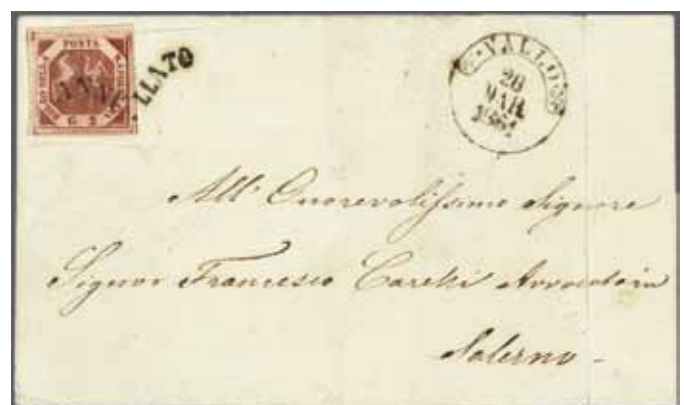 POSTA
G 2
ANNULLATO
VALLO
28
MAR
1861
All' Onorevolissimo Signore
Signor Francesco Carelli Avvocato in
Salerno -